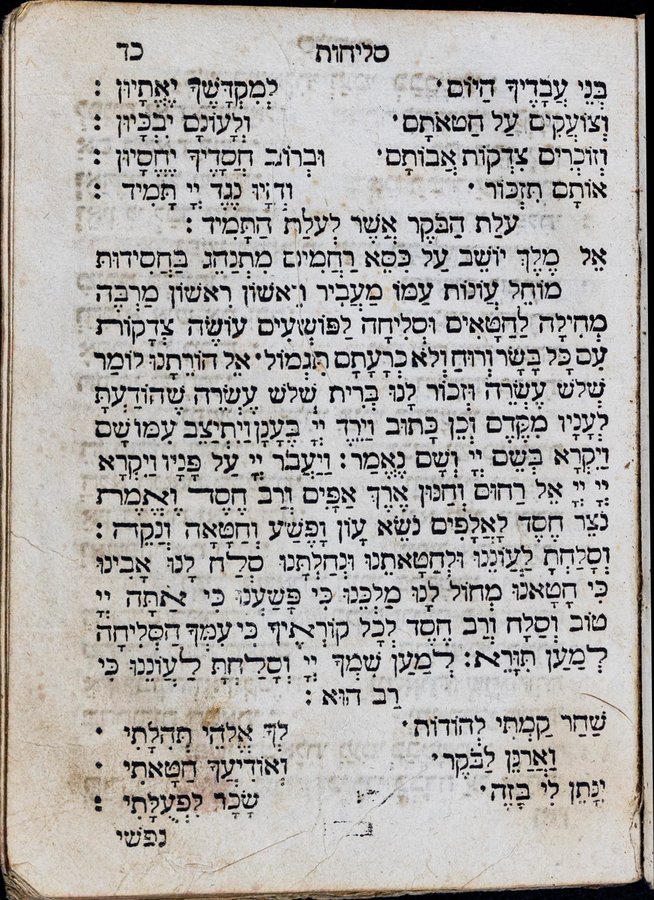 סליחות כד
בְּנֵי עֲבָדֶיךָ הַיּוֹם· לְמִקְדָּשֶׁךָ יֶאֱתָיוּן :
וְצוֹעֲקִים עַל חַטֹּאתָם· וְלַעֲוֹנָם יִבְכָּיוּן :
וְזוֹכְרִים צִדְקוֹת אֲבוֹתָם· וּבְרוֹב חֲסָדֶיךָ יֶחֱסָיוּן :
אוֹתָם תִּזְכּוֹר· וְדָיוּ נֶגֶד יְיָ תָּמִיד :
עֹלַת הַבֹּקֶר אֲשֶׁר לְעֹלַת הַתָּמִיד :
אֵל מֶלֶךְ יוֹשֵׁב עַל כִּסֵּא רַחֲמִים מִתְנַהֵג בַּחֲסִידוּת
מוֹחֵל עֲוֹנוֹת עַמּוֹ מַעֲבִיר רִאשׁוֹן רִאשׁוֹן מַרְבֶּה
מְחִילָה לַחַטָּאִים וּסְלִיחָה לַפּוֹשְׁעִים עוֹשֶׂה צְדָקוֹת
עִם כָּל בָּשָׂר וְרוּחַ וְלֹא כְרָעָתָם תִּגְמוֹל· אֵל הוֹרֵתָנוּ לוֹמַר
שְׁלֹשׁ עֶשְׂרֵה וּזְכוֹר לָנוּ בְּרִית שְׁלֹשׁ עֶשְׂרֵה שֶׁהוֹדַעְתָּ
לְעָנָיו מִקֶּדֶם וְכֵן כָּתוּב וַיֵּרֶד יְיָ בֶּעָנָן וַיִּתְיַצֵּב עִמּוֹ שָׁם
וַיִּקְרָא בְשֵׁם יְיָ וְשָׁם נֶאֱמַר : וַיַּעֲבֹר יְיָ עַל פָּנָיו וַיִּקְרָא
יְיָ יְיָ אֵל רַחוּם וְחַנּוּן אֶרֶךְ אַפַּיִם וְרַב חֶסֶד וֶאֱמֶת
נֹצֵר חֶסֶד לָאֲלָפִים נֹשֵׂא עָוֹן וָפֶשַׁע וְחַטָּאָה וְנַקֵּה :
וְסָלַחְתָּ לַעֲוֹנֵנוּ וּלְחַטָּאתֵנוּ וּנְחַלְתָּנוּ סְלַח לָנוּ אָבִינוּ
כִּי חָטָאנוּ מְחוֹל לָנוּ מַלְכֵּנוּ כִּי פָשָׁעְנוּ כִּי אַתָּה יְיָ
טוֹב וְסַלָּח וְרַב חֶסֶד לְכָל קוֹרְאֶיךָ כִּי עִמְּךָ הַסְּלִיחָה
לְמַעַן תִּוָּרֵא : לְמַעַן שִׁמְךָ יְיָ וְסָלַחְתָּ לַעֲוֹנֵנוּ כִּי
רַב הוּא :
שַׁחַר קַמְתִּי לְהוֹדוֹת· לְךָ אֱלֹהֵי תְהִלָּתִי ·
וַאֲרַנֵּן לַבֹּקֶר· וְאוֹדִיעֲךָ חַטָּאתִי ·
יִנָּתֵן לִי בָזֶה· שָׂכָר לִפְעֻלָּתִי :
נפשי